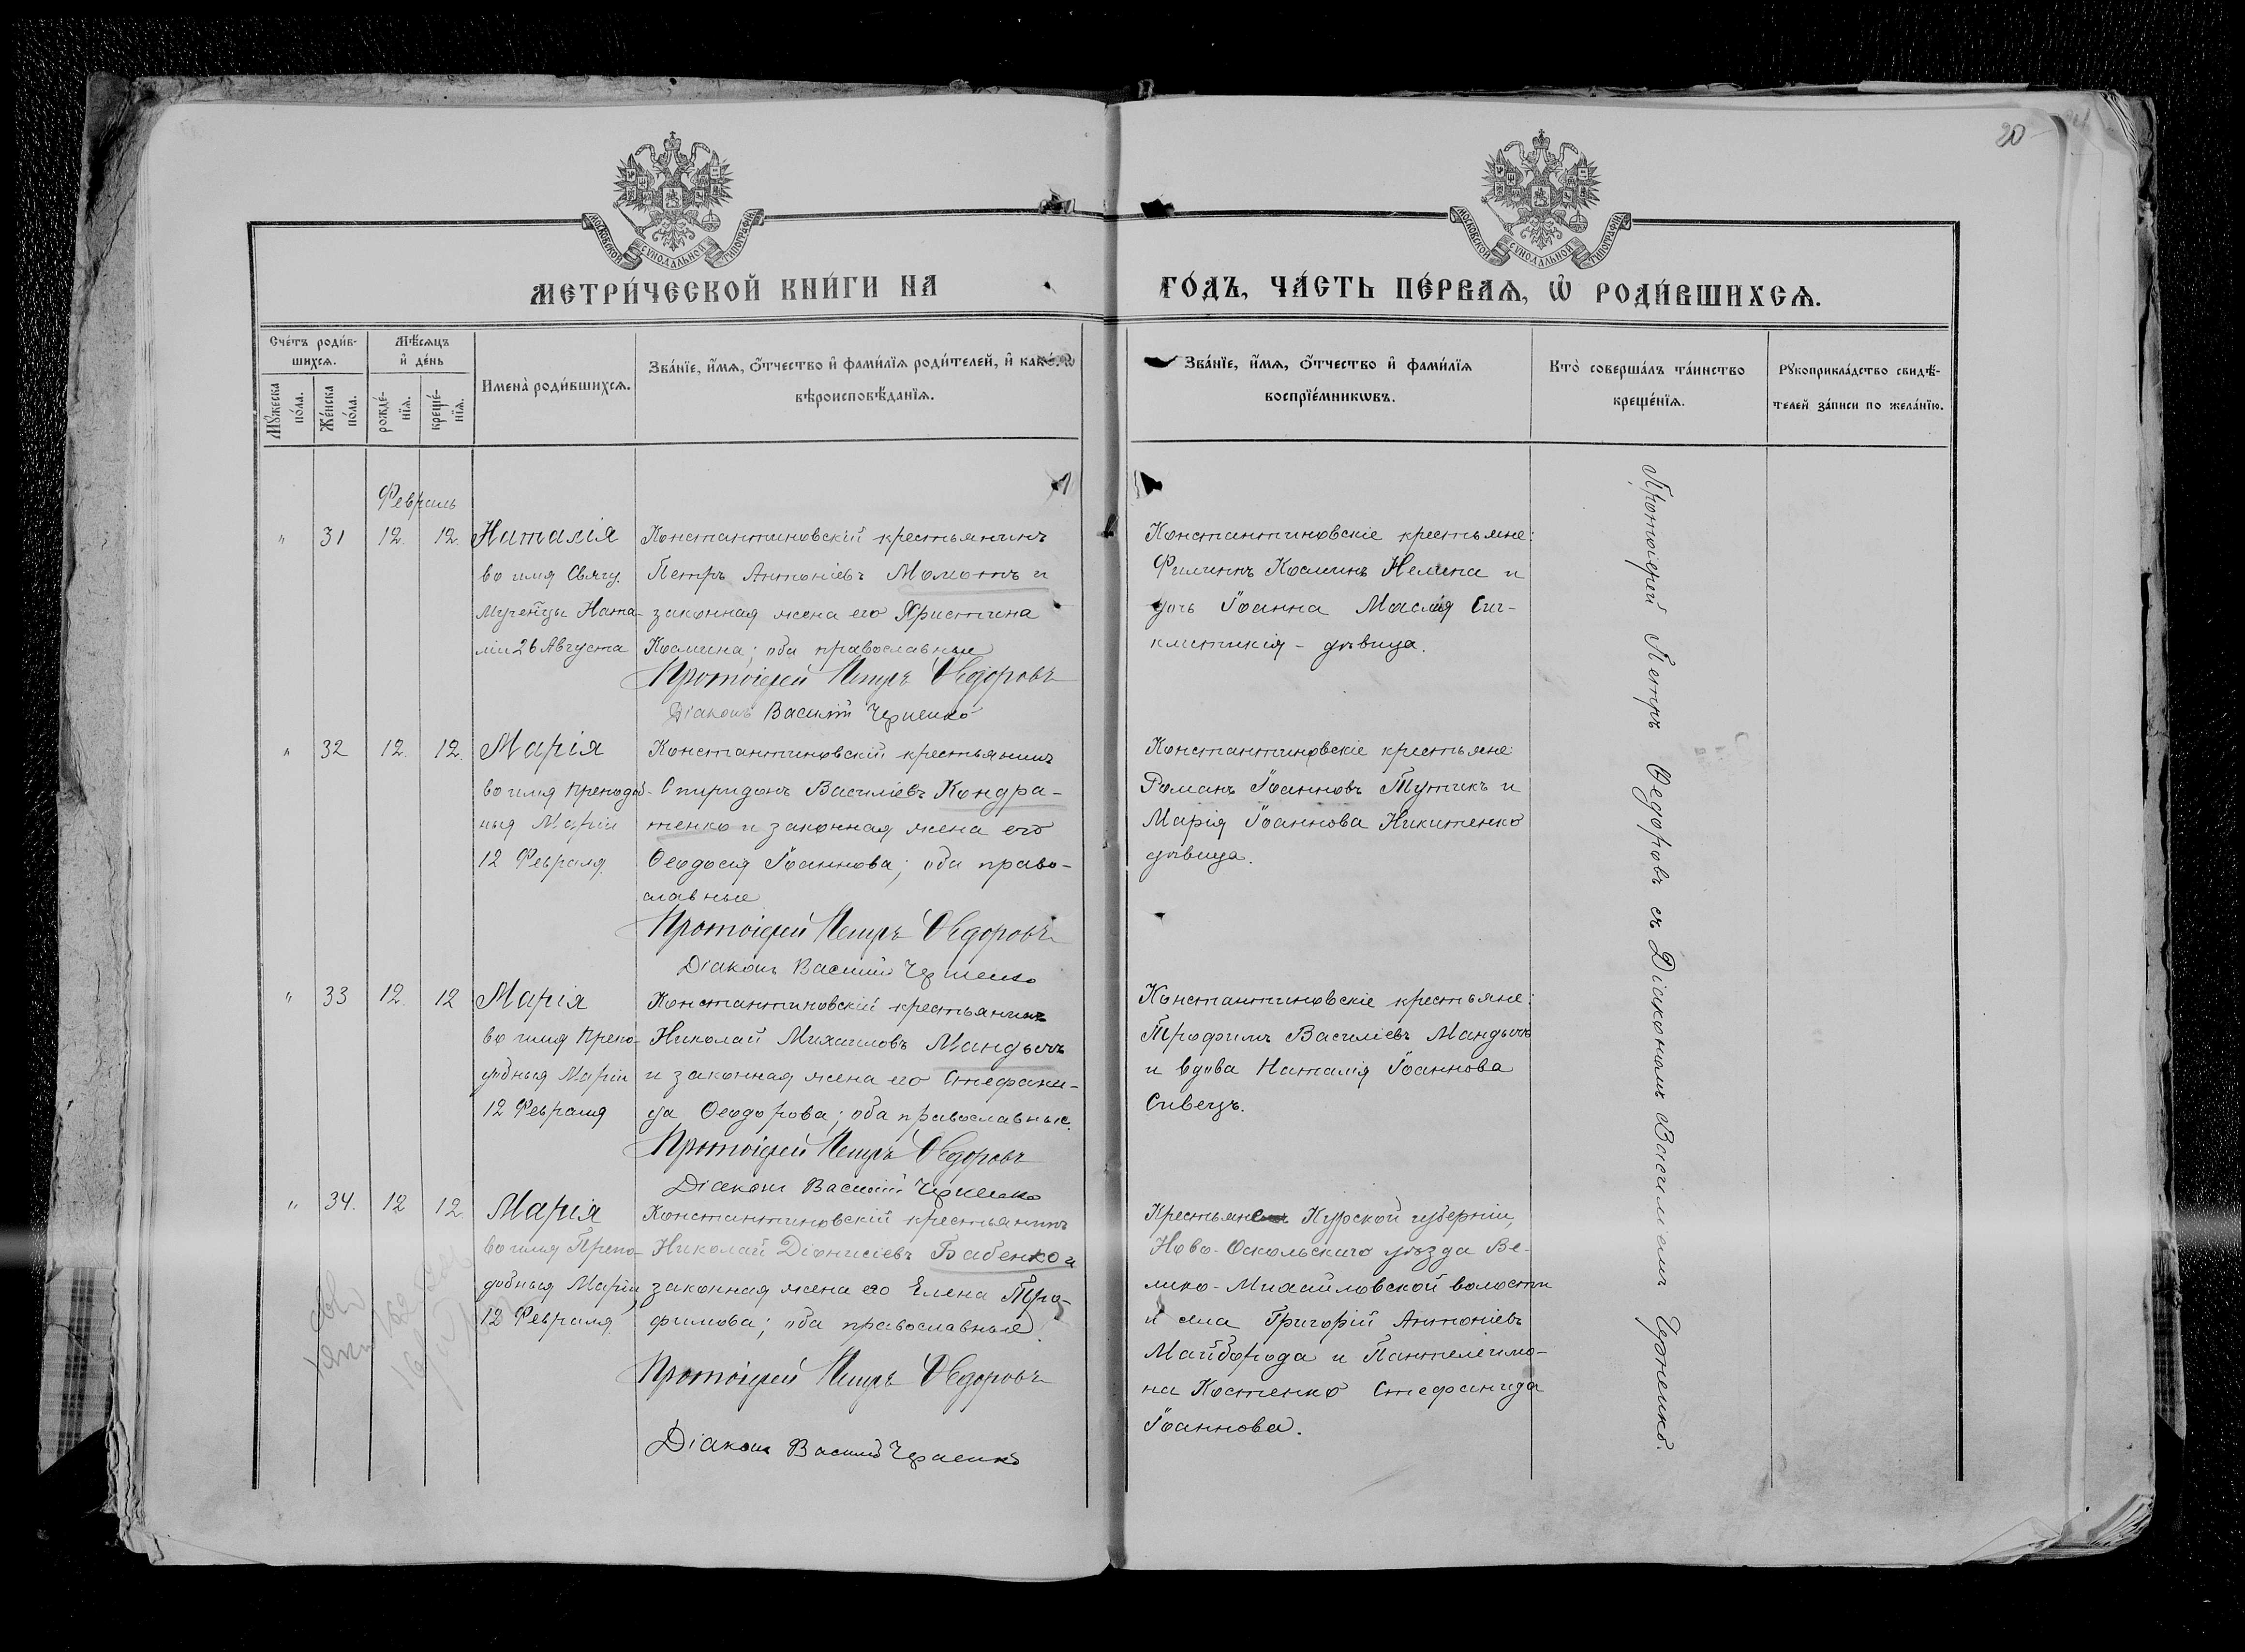 20
МОСКОВСКОЙ СѴНОДАЛЬНОЙ ТИПОГРАФІИ
МОСКОВСКОЙ СѴНОДАЛЬНОЙ ТИПОГРАФІИ
МЕТРИ́ЧЕСКОЙ КНИ́ГИ НА
ГО́ДЪ, ЧА́СТЬ ПЕ́РВАѦ, Ѽ РОДИ́ВШИХСѦ.
Сче́тъ роди́в-
шихсѧ.
Мꙋ́жеска
по́ла.
Же́нска
по́ла.
Мѣ́сѧцъ
и҆ де́нь
рожде́-
нїѧ.
креще́-
нїѧ.
Имена̀ роди́вшихсѧ.
Зва́нїе, и҆́мѧ, ѻ҆́тчество и҆ фами́лїѧ роди́телей, и҆ како́гѡ
вѣроисповѣ́данїѧ.
Зва́нїе, и҆́мѧ, ѻ҆́тчество и҆ фами́лїѧ
воспрїе́мникѡвъ.
Кто̀ соверша́лъ та́инство
креще́нїѧ.
Рꙋкоприкла́дство свидѣ́-
телей за́писи по жела́нїю.
Февраль
" 31 12. 12. Наталія
во имя Святу.
Мученицы Ната-
ліи 26 Августа
Константиновскій крестьянинъ
Петръ Антоніевъ Момотъ и
законная жена его Христина
Космина; оба православные
Протоіерей Петръ Ѳедоровъ
Діаконъ Василій Черненко
Константиновскіе крестьяне:
Филиппъ Косминъ Нелипа и
дочь Іоанна Маслія Син-
клитикія - дѣвица.
" 32 12. 12. Марія
во имя Преподоб-
ныя Маріи
12 Февраля.
Константиновскій крестьянинъ
Спиридонъ Василіевъ Кондра-
тенко и законная жена его
Ѳеодосія Іоаннова; оба право-
славные
Протоіерей Петръ Ѳедоровъ
Діаконъ Василій Черненко
Константиновскіе крестьяне
Романъ Іоанновъ Тутикъ и
Марія Іоаннова Никитенко
дѣвица.
" 33 12. 12 Марія
во имя Препо-
добныя Маріи
12 Февраля
Константиновскій крестьянинъ
Николай Михаиловъ Мандычъ
и законная жена его Стефани-
да Ѳеодорова; оба православные.
Протоіерей Петръ Ѳедоровъ
Діаконъ Василій Черненко
Константиновскіе крестьяне:
Трофимъ Василіевъ Мандычъ
и вдова Наталія Іоаннова
Сивецъ.
" 34. 12 12 Марія
во имя Препо-
добныя Маріи
12 Февраля
Константиновскій крестьянинъ
Николай Діонисіевъ Бабенко и
законная жена его Елена Тро-
фимова; оба православные.
Протоіерей Петръ Ѳедоровъ
Діаконъ Василій Черненко
Крестьяне Курской губерніи,
Ново-Оскольскаго уѣзда Ве-
лико-Михаиловской волости
и села Григорій Антоніевъ
Майборода и Пантелеимо-
на Костенко Стефанида
Іоаннова.
Протоіерей Петръ Ѳедоровъ съ Діакономъ Василіемъ Черненко.